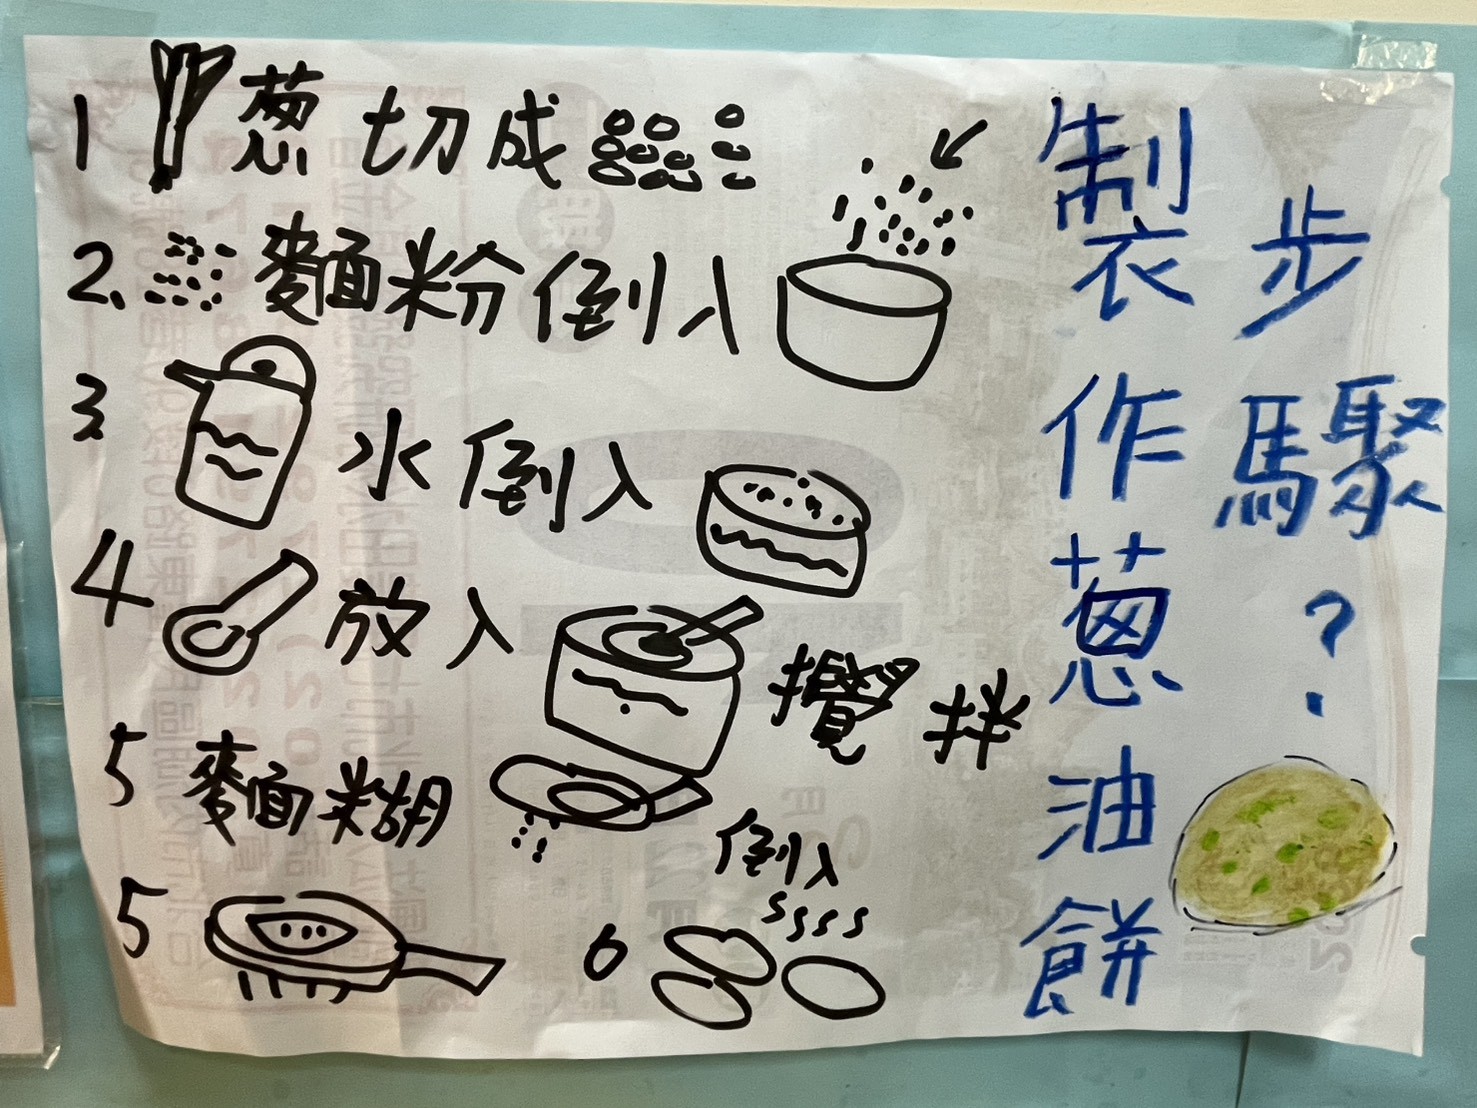 製作蔥油餅
步驟?
1 蔥切成
2、麵粉倒入
3、水倒入
4 放入 攪拌
5 麵糊 倒入
5
6